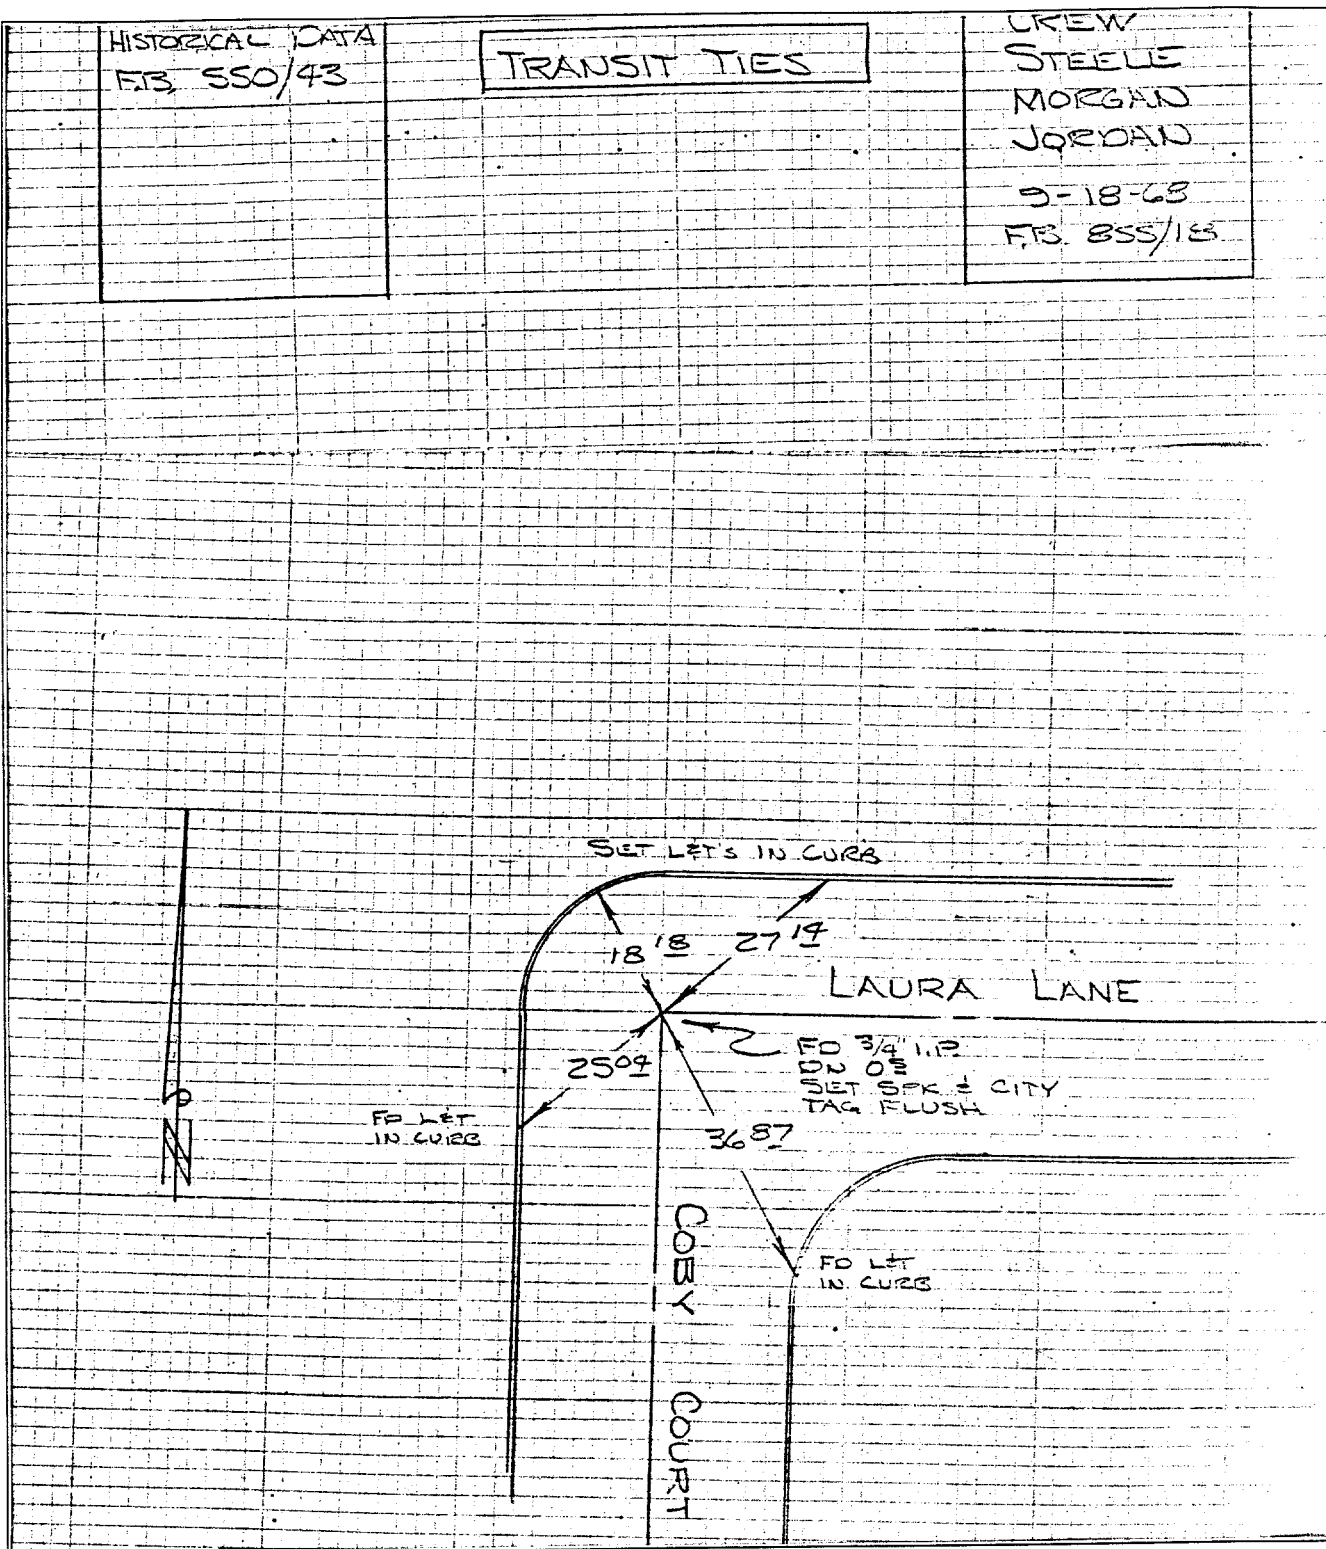 HISTORICAL DATA
F.B. 550/43
TRANSIT TIES
CREW
STEELE
MORGAN
JORDAN
9-18-68
F.B. 855/18
SET L&T'S IN CURB
18 18
27 14
LAURA LANE
25 04
FD 3/4" I.P.
DN
SET SPK & CITY
TAG FLUSH
FD L&T
IN CURB
36 87
N
COBY COURT
FD L&T
IN CURB